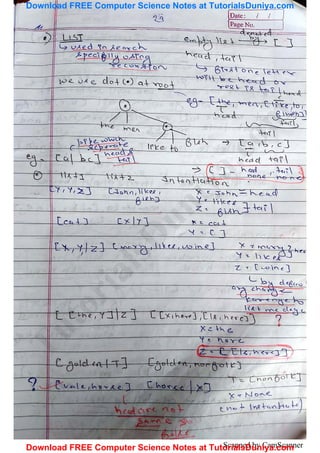 Download FREE Computer Science Notes at TutorialsDuniya.com
29
Date: / /
Page No.
LIST empty list denoted by → [ ]
→ used in search head, tail
specially using
recursion → first one letter
will be head or
rest is tail
we use dot(•) at root
eg- [the, men, [like, to, fish]]
head tail
the men
like to fish → [a, b, c]
head tail
separate head & tail
eg- [a|bc] → [ ] - head, tail
none none
list1 list2 Intantiation
[X, Y, Z] [John, likes, fish] X = John = head
Y = likes
Z = fish } tail
[cat] [X|Y] X = cat
Y = [ ]
[X, Y|Z] [mary, likes, wine] X = mary
Y = likes
Z = [wine]
by
[[the, Y]|Z] [[X, hare], [is, here]] ?
X = the
Y = hare
Z = [[is, here]]
[golden|T] [golden, norfolk]
T = [norfolk]
? [vale, horse] [horse|X] X = None
(not Instantiate)
head are not
same so
false.
Download FREE Computer Science Notes at TutorialsDuniya.com
Scanned by CamScanner